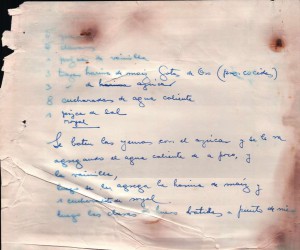 6 claras
1 pizca de vainilla
3 tazas harina de maíz Gotas de Oro (pre cocida)
3 " de harina azúcar
8 cucharadas de agua caliente
1 pizca de sal
royal
Se baten las yemas con el azúcar y se le va
agregando el agua caliente de a poco, y
la vainilla,
luego se le agrega la harina de maíz y
1 cucharadita royal
luego las claras batidas a punto de nie